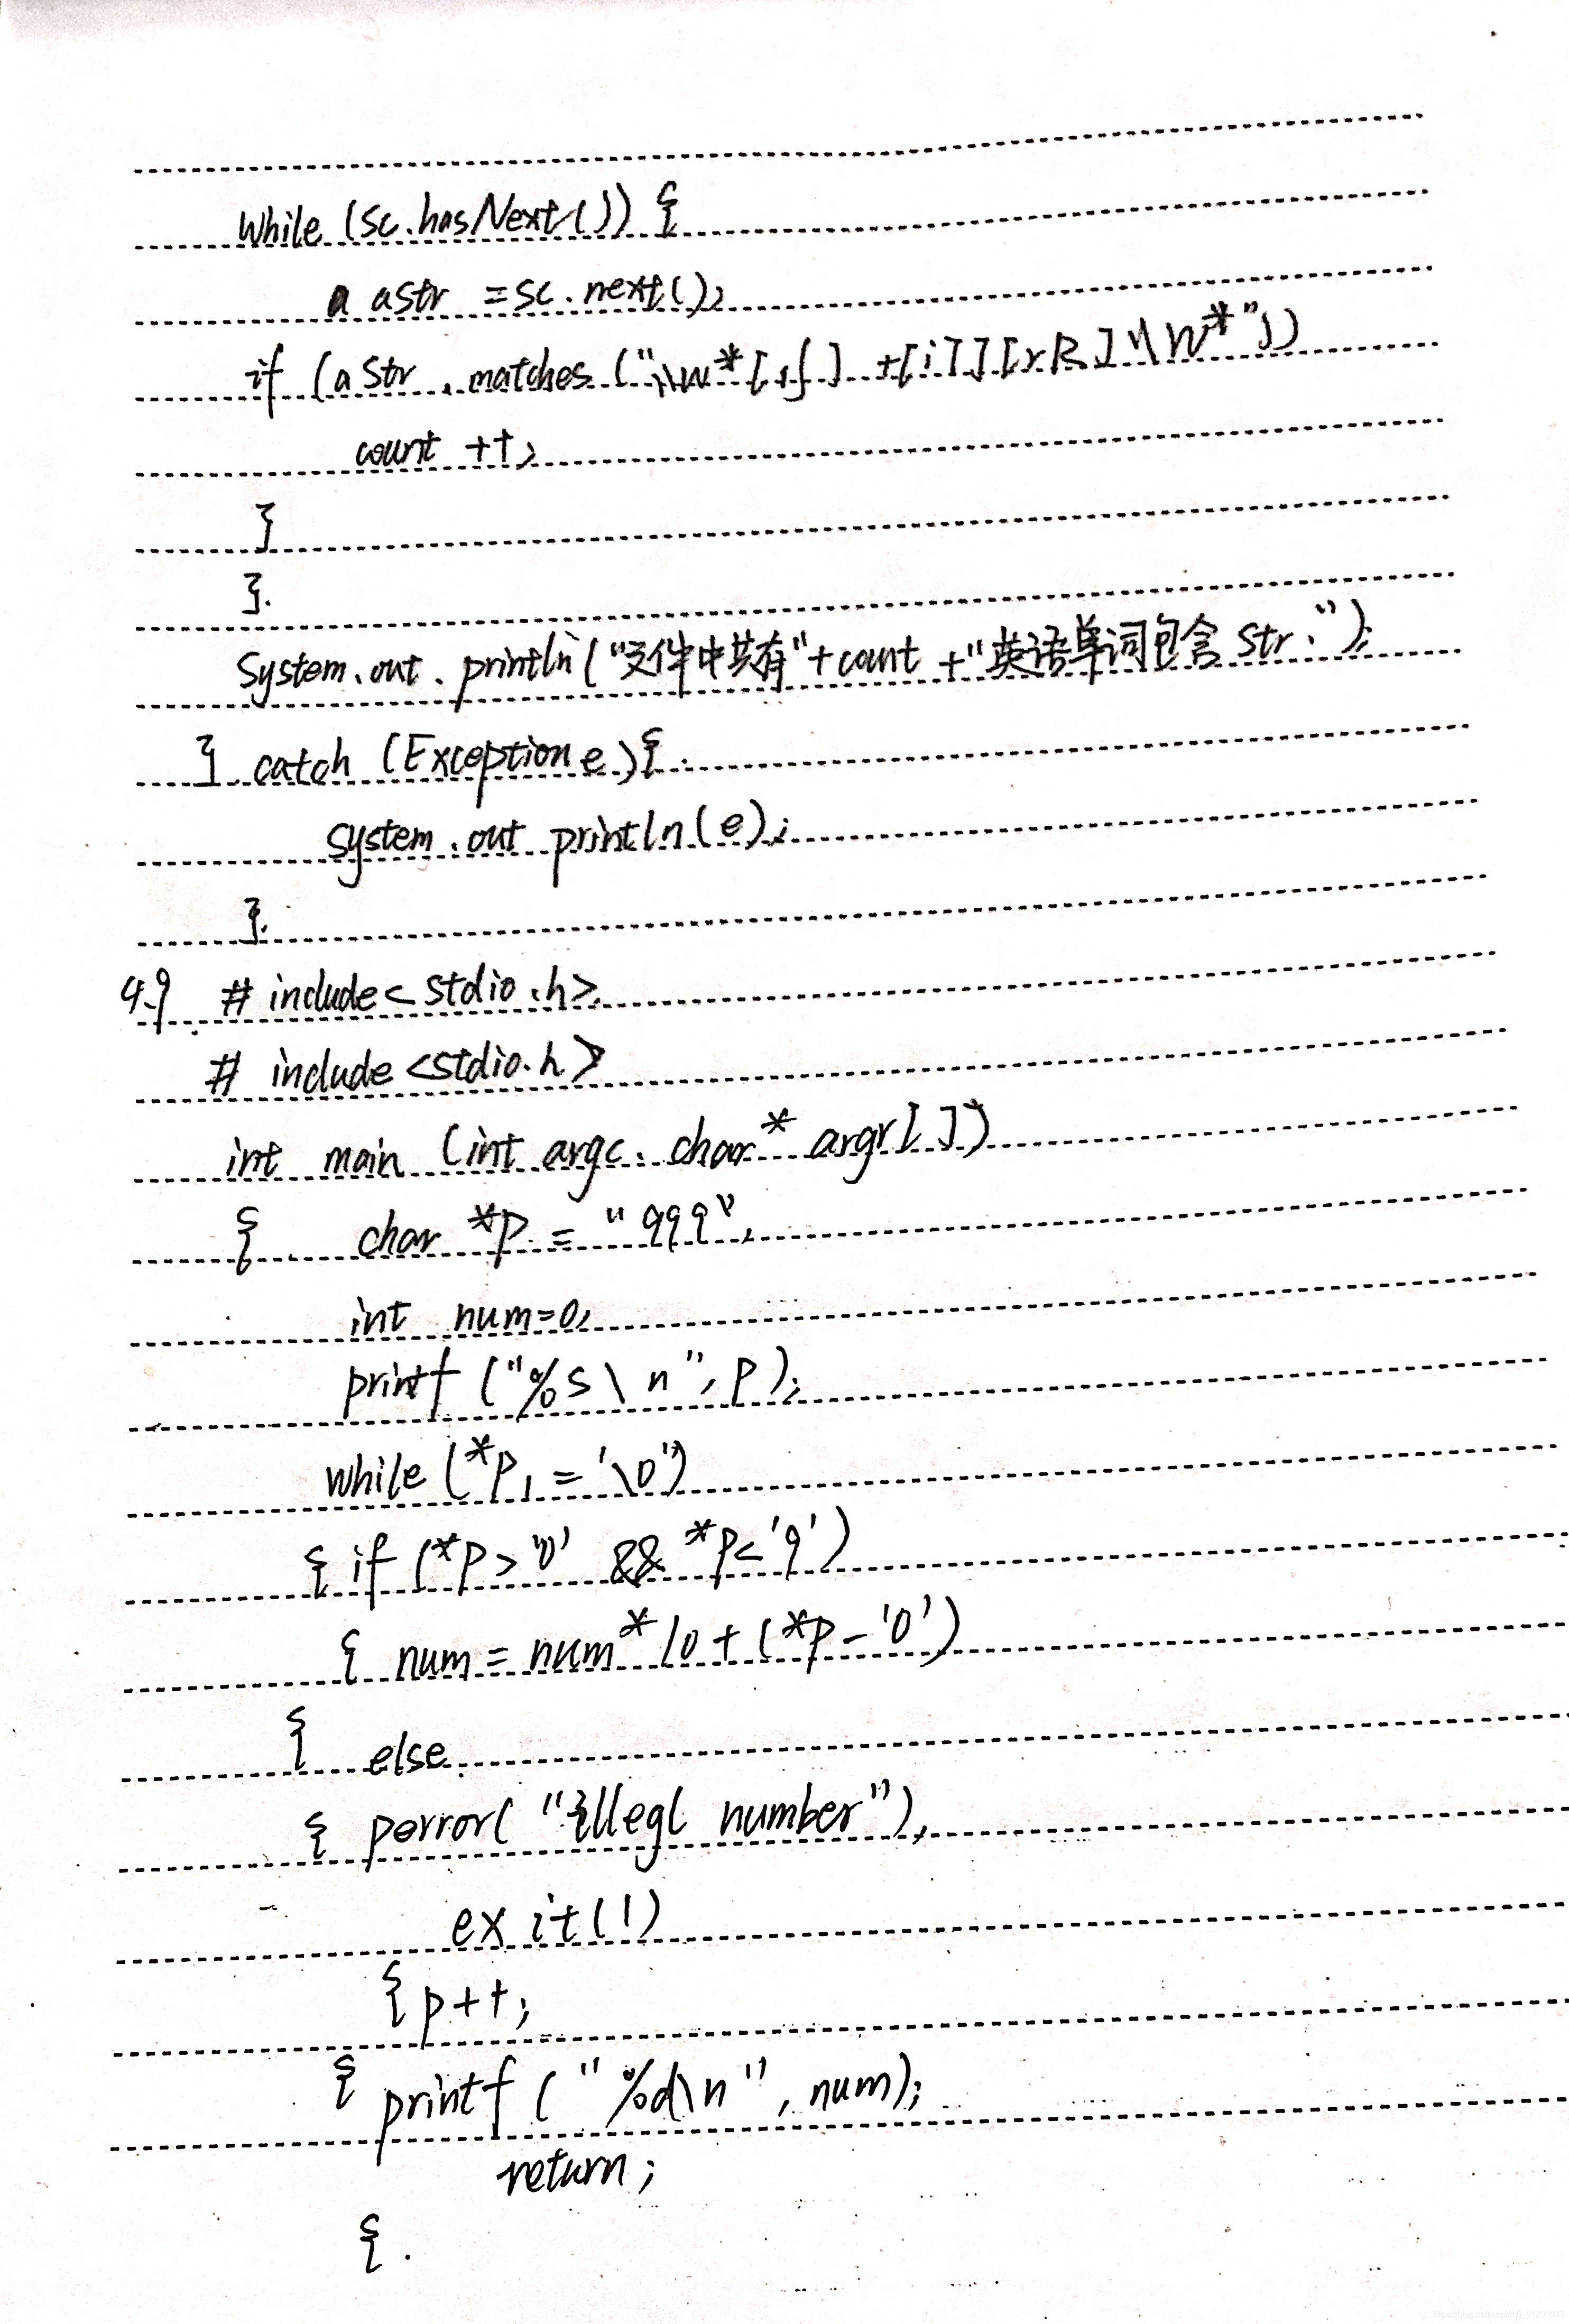 while (sc.hasNext()) {
a astr = sc.next();
if (aStr.matches("\\w*[sS]+[iI][rR]\\w*"))
count ++;
}
}.
System.out.println("文件中共有"+count+"英语单词包含str.");
} catch (Exception e){.
system.out println(e);
}.
4.9 # include<stdio.h>
# include<stdio.h>
int main (int argc, char* argr[])
{ char *p = "999",
int num=0,
printf ("%s\n", p);
while (*p != '\0')
{ if (*p>'0' && *p<'9')
{ num = num*10+(*p-'0')
{ else
{ perror( "illegl number"),
exit(1)
{p++;
{ printf ("%d\n", num);
return;
{.